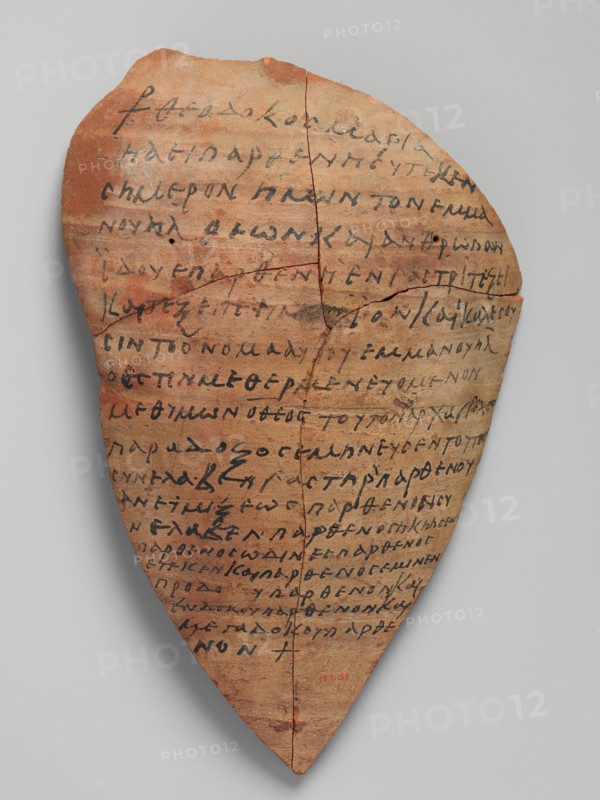 ⳨ ΘΕΟΔΟΚΟϹ ΜΑΡΙΑ
Η ΑΕΙΠΑΡΘΕΝΗ ΕΥΤΕΚΕΝ
ϹΗΜΕΡΟΝ ΗΜΩΝ ΤΟΝ ΕΜΜΑ
ΝΟΥΗΛ ΘΕΩΝ ΚΑΙ ΑΝΘΡΩΠΟΝ
ΪΔΟΥ Ε ΠΑΡΘΕΝΗ ΕΝ ΓΑϹΤΡΙ ΤΕΞΕΙ
ΚΑΙ ΤΕΞΕΙΤΕ ΚΑΙ ΚΑΛΕϹΟΥ
ϹΙΝ ΤΟ ΟΝΟΜΑ ΑΥΤΟΥ ΕΜΜΑΝΟΥΗΛ
Ο ΕϹΤΙΝ ΜΕΘΕΡΜΕΝΕΥΟΜΕΝΟΝ
ΜΕΘ ΙΜΩΝ Ο ΘΕΟϹ ΤΟΥΤΟΝ
ΠΑΡΑΔΟΞΟϹ ΕΜΗΝΕΥϹΕΝ ΤΟΥΤΟΝ
ϹΥΝΕΛΑΒΕΝ ΓΑϹΤΗΡ ΠΑΡΘΕΝΟΥ
ΑΝΕΥ ΜΙΞΕΩϹ ΠΑΡΘΕΝΟϹ ϹΥ
ΝΕΛΑΒΕΝ ΠΑΡΘΕΝΟϹ ΗΚΗϹΕΝ
ΠΑΡΘΕΝΟϹ ΩΔΙΝΕΕ ΠΑΡΘΕΝΟϹ
ΕΤΕΚΕΝ ΚΑΙ ΠΑΡΘΕΝΟϹ ΕΜΙΝΕΝ
ΠΡΟ ΔΟΚΟΥ ΠΑΡΘΕΝΟΝ ΚΑΙ
ΕΝ ΔΟΚΟΥ ΠΑΡΘΕΝΟΝ ΚΑΙ
ΜΕΤΑ ΔΟΚΟΥ ΠΑΡΘΕ
ΝΟΝ +
PHOTO12